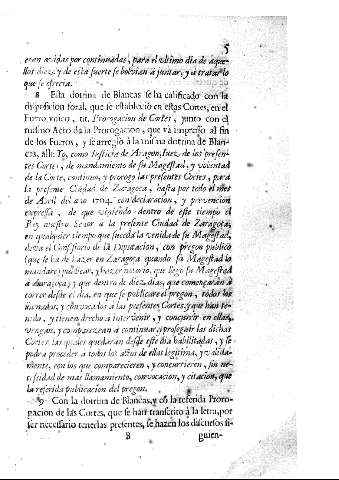 5
eran avidas por continuadas, para el ultimo dia de aque-
llos diez, y de esta suerte se bolvian à juntar, y a tratar lo
que se ofrecia.
8 Esta dotrina de Blancas se ha calificado con la
disposicion foral, que se estableciò en estas Cortes, en el
Fuero vnico, tit. Prorogacion de Cortes, junto con el
mismo Acto de la Prorogacion, que và impresso al fin
de los Fueros, y se arreglò à la misma dotrina de Blan-
cas, allì: Yo, como Iusticia de Aragon, Iuez de las presen-
tes Cortes, de mandamiento de su Magestad, y voluntad
de la Corte, continuo, y prorogo las presentes Cortes, para
la presente Ciudad de Zaragoza, hasta por todo el mes
de Abril del año 1704. con declaracion, y prevencion
expressa, de que viniendo dentro de este tiempo el
Rey nuestro Señor à la presente Ciudad de Zaragoza,
en qualquier tiempo que suceda la venida de su Magestad,
deva el Consistorio de la Diputacion, con pregon publico
(que se ha de hazer en Zaragoza quando su Magestad lo
mandare) publicar, y hazer notorio, que llegò su Magestad
à Zaragoza; y que dentro de diez dias, que començaràn à
correr desde el dia, en que se publicare el pregon, todos los
llamados, y convocados à las presentes Cortes, y que han te-
nido, y tienen drecho à intervenir, y concurrir en ellas,
vengan, y comparezcan à continuar, y proseguir las dichas
Cortes: las quales quedaràn desde este dia habilitadas, y se
podrà proceder à todos los actos de ellas legitima, y valida-
mente, con los que comparecieren, y concurrieren, sin ne-
cessidad de mas llamamiento, convocacion, y citacion, que
la referida publicacion del pregon.
9 Con la dotrina de Blancas, y cõ la referida Proro-
gacion de las Cortes, que se han transcrito à la letra, por
ser necessario tenerlas presentes, se hazen los discursos si-
B guien-